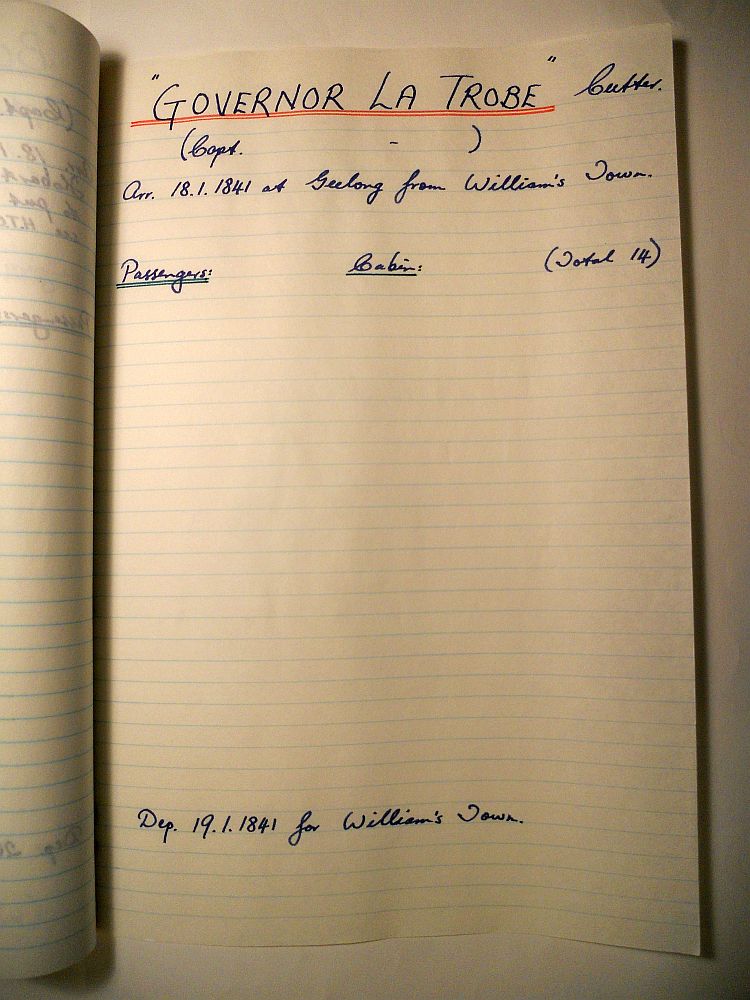 "GOVERNOR LA TROBE" Cutter.
(Capt. - )
Arr. 18.1.1841 at Geelong from William's Town.
Passengers: Cabin: (Total 14)
Dep. 19.1.1841 for William's Town.